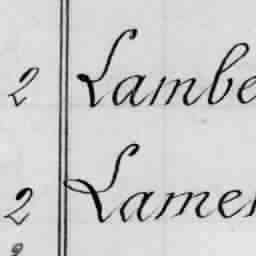 2 Lambe
2 Lamer
2